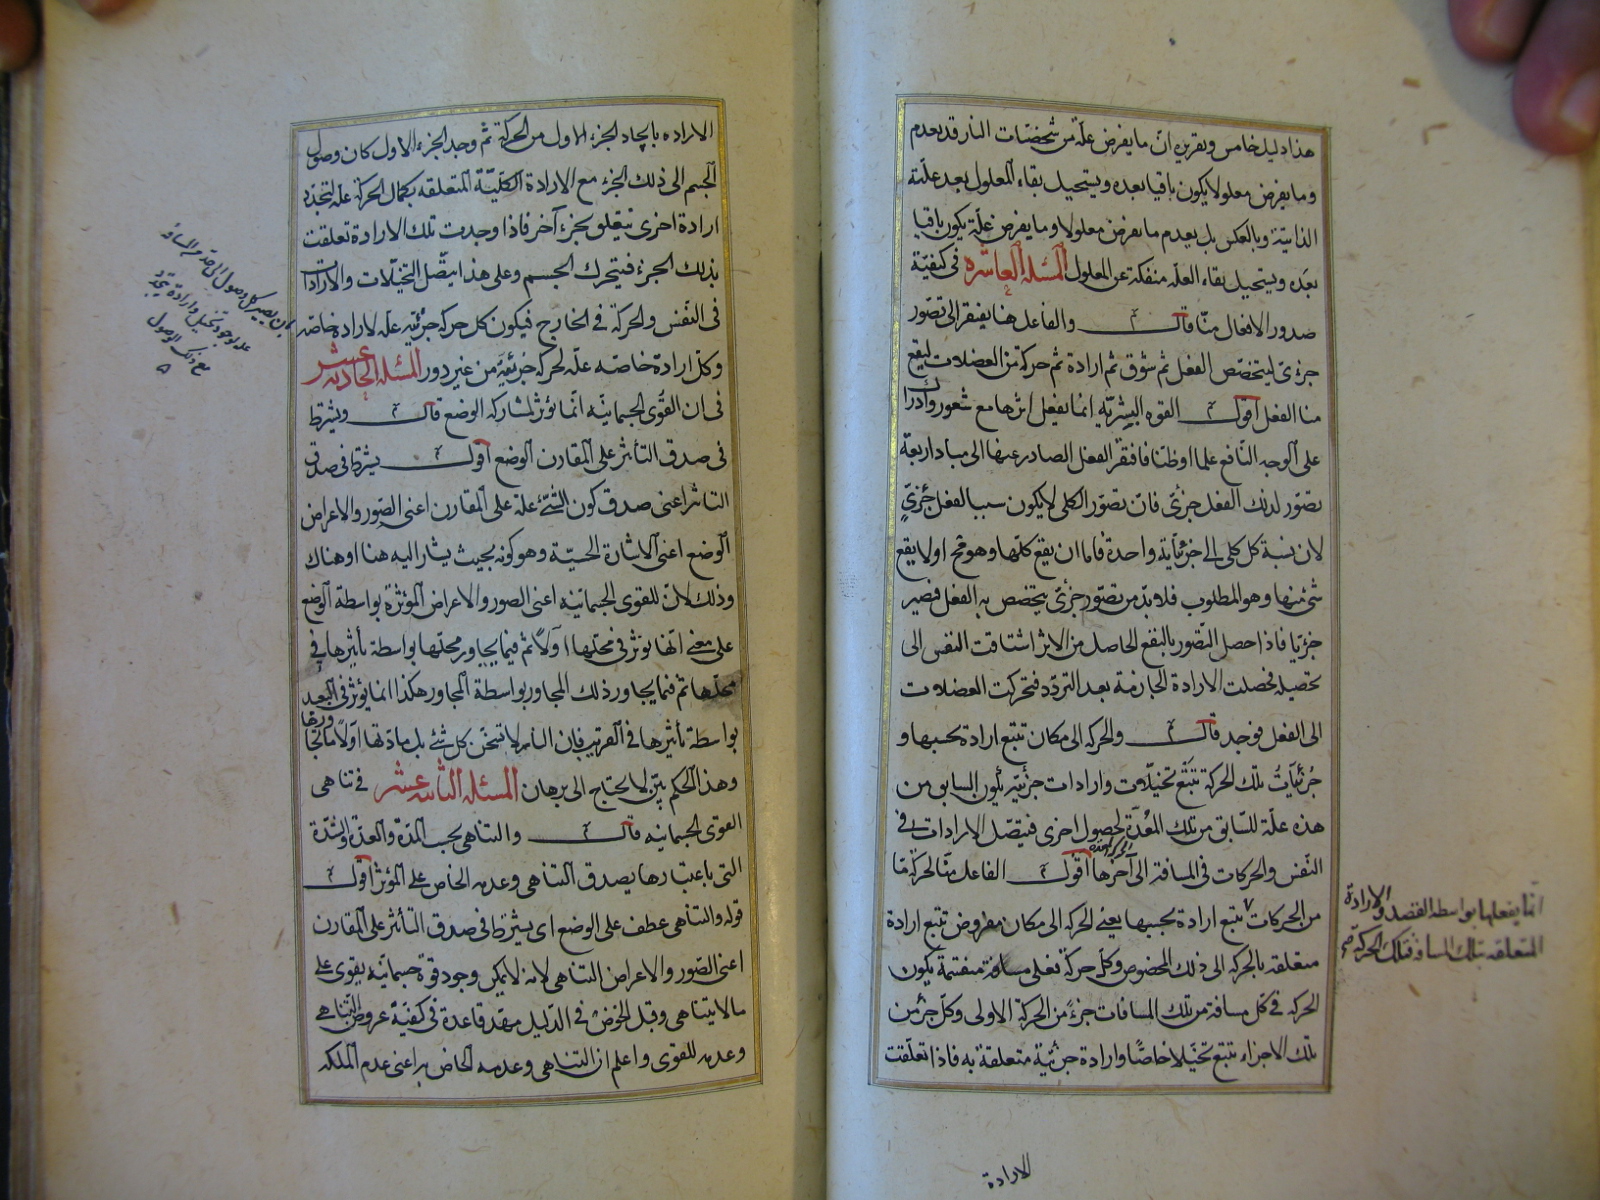 هذا دليل خامس وتقريره انّ ما يفرض علّة من شخصيّات النار قد يعدم
وما يفرض معلولا يكون باقيا بعده ويستحيل بقاء المعلول بعد علّته
الذاتيّة وبالعكس بل يعدم ما يفرض معلولا وما يفرض علّة يكون باقيا
بعده ويستحيل بقاء العلّه منفكة عن المعلول المسئلة العاشره فى كيفيّة
صدور الافعال منّا قال والفاعل هنا يفتقر الى تصوّر
جزءىّ ليتخصّص الفعل ثم شوق ثم ارادة ثم حركة من العضلات ليقع
منا الفعل اقول القوه البشريّه انما يفعل اثرها مع شعور وادراك
على الوجه النّافع علما او ظنّا فافتقر الفعل الصادر عنها الى مباد اربعة
تصوّر لذلك الفعل جزئى فانّ تصوّر الكلى لا يكون سببا لفعل جزئىّ
لان نسبة كل كلى الى جزئياته واحدة فاما ان يقع كلّها وهو مح او لا يقع
شئ منها وهو المطلوب فلا بدّ من تصوّر جزئى يتخصص به الفعل فيصير
جزئيا فاذا حصل التّصور بالنفع الحاصل من الاثر اشتاقت النفس الى
تحصيله فحصلت الارادة الجازمة بعد التردّد فتحركت العضلات
الى الفعل فوجد قال والحركه الى مكان تتبع ارادة بحسبها و
جُزئيّاتُ تلك الحركة تتبع تخيّلات وارادات جزئيّه يكون السابق من
هذه علّة للسّابق من تلك المعدّة لحصول اخرى فيتصل الارادات فى
النّفس والحركات فى المسافة الى آخرها اقول الفاعل منّا لحركة ما
من الحركات تتبع ارادة بحسبها يعنى الحركه الى مكان مفروض تتبع ارادة
متعلقه بالحركه الى ذلك المخصوص وكلّ حركة فعلى مسافة منقسمة يكون
الحركه فى كل مسافة من تلك المسافات جزءً من الحركة الاولى وكل جزء من
تلك الاجزاء يتبع تخيّلا خاصّا وارادة جزئيّة متعلقة به فاذا تعلّقت
انّما يفعلها بواسطه القصد والارادة
المتعلقه بتلك المسافه فتلك الحركة
الارادة
الاراده بايجاد الجزء الاول من الحركة ثم وجد الجزء الاول كان وصول
الجسم الى ذلك الجزء مع الارادة الكليّة المتعلقه بكمال الحركة علّة لتجدّد
ارادة اخرى تتعلق بجزء آخر فاذا وجدت تلك الارادة تعلقت
بذلك الجزء فيتحرك الجسم وعلى هذا ايتصّل التخيّلات والارادات
فى النّفس والحركة فى الخارج فيكون كل حركه جزئيّه علّه لارادة خاصّه
وكلّ ارادة خاصّه علّه لحركه جزئيّه من غير دور المسئلة الحادية عشر
فى ان القوى الجسمانيّه انّما يؤثر لمشاركه الوضع قال ويشترط
فى صدق التأثير على المقارن الوضع اقول يشترط فى صدق
التاثير اعنى صدق كون الشئ علّة على المقارن اعنى الصور والاعراض
الوضع اعنى الاشارة الحسيّة وهو كونه بحيث يشار اليه هنا او هناك
وذلك لانّ للقوى الجسمانيّه اعنى الصور والاعراض المؤثرة بواسطة الوضع
على معنى انّها يؤثر فى محلّها اوّلا ثم فيما يجاور محلّها بواسطة تأثيرها فى
محلّها ثم فيما يجاور ذلك المجاور بواسطة المجاور هكذا انما يؤثر فى البعيد
بواسطة تأثيرها فى القريب فان النار لا تسخن كل شئ بل مادتها اولا ما تجاورها
وهذا الحكم بيّن لا يحتاج الى برهان المسئلة الثانيه عشر فى تناهى
القوى الجسمانيه قال والتناهى بحسب المدّة والعدّة والشّدّة
التى باعتبارها يصدق التناهى وعدمه الخاص على المؤثر اقول
قوله والتناهى عطف على الوضع اى يشترط فى صدق التأثير على المقارن
اعنى الصّور والاعراض التناهى لانه لا يمكن وجود قوّة جسمانيّه يقوى على
ما لا يتناهى وقبل الخوض فى الدّليل مهّد قاعدة فى كيفيّة عروض التناهى
وعدمه للقوى واعلم ان التناهى وعدمه الخاص به اعنى عدم الملكه